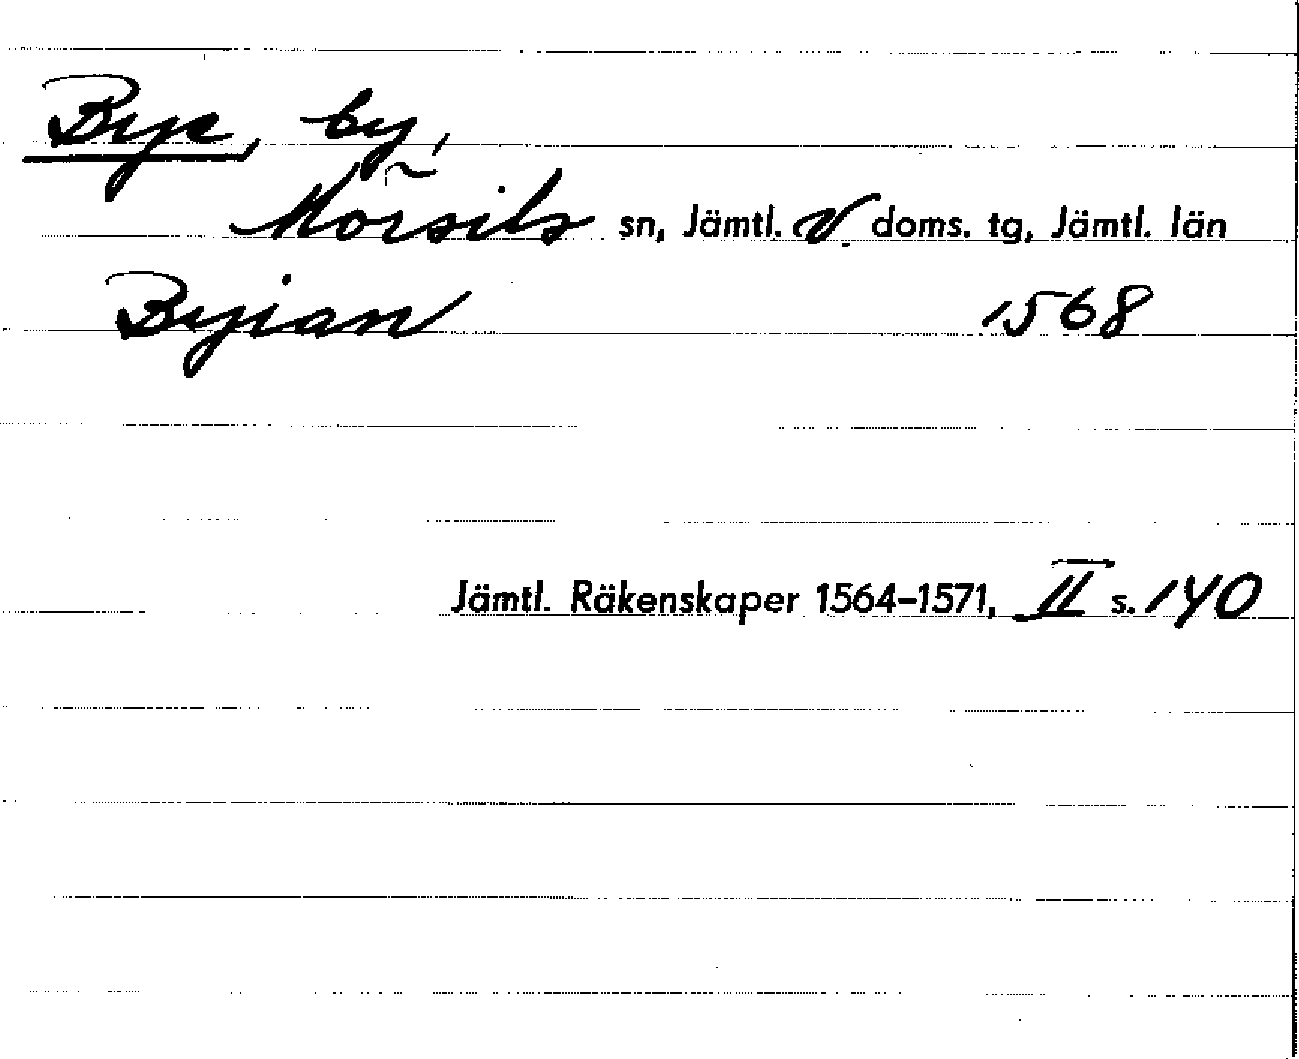 Bye, by,
Mörsils sn, Jämtl. V. doms. tg, Jämtl. län
Byian 1568
Jämtl. Räkenskaper 1564-1571, II s. 140